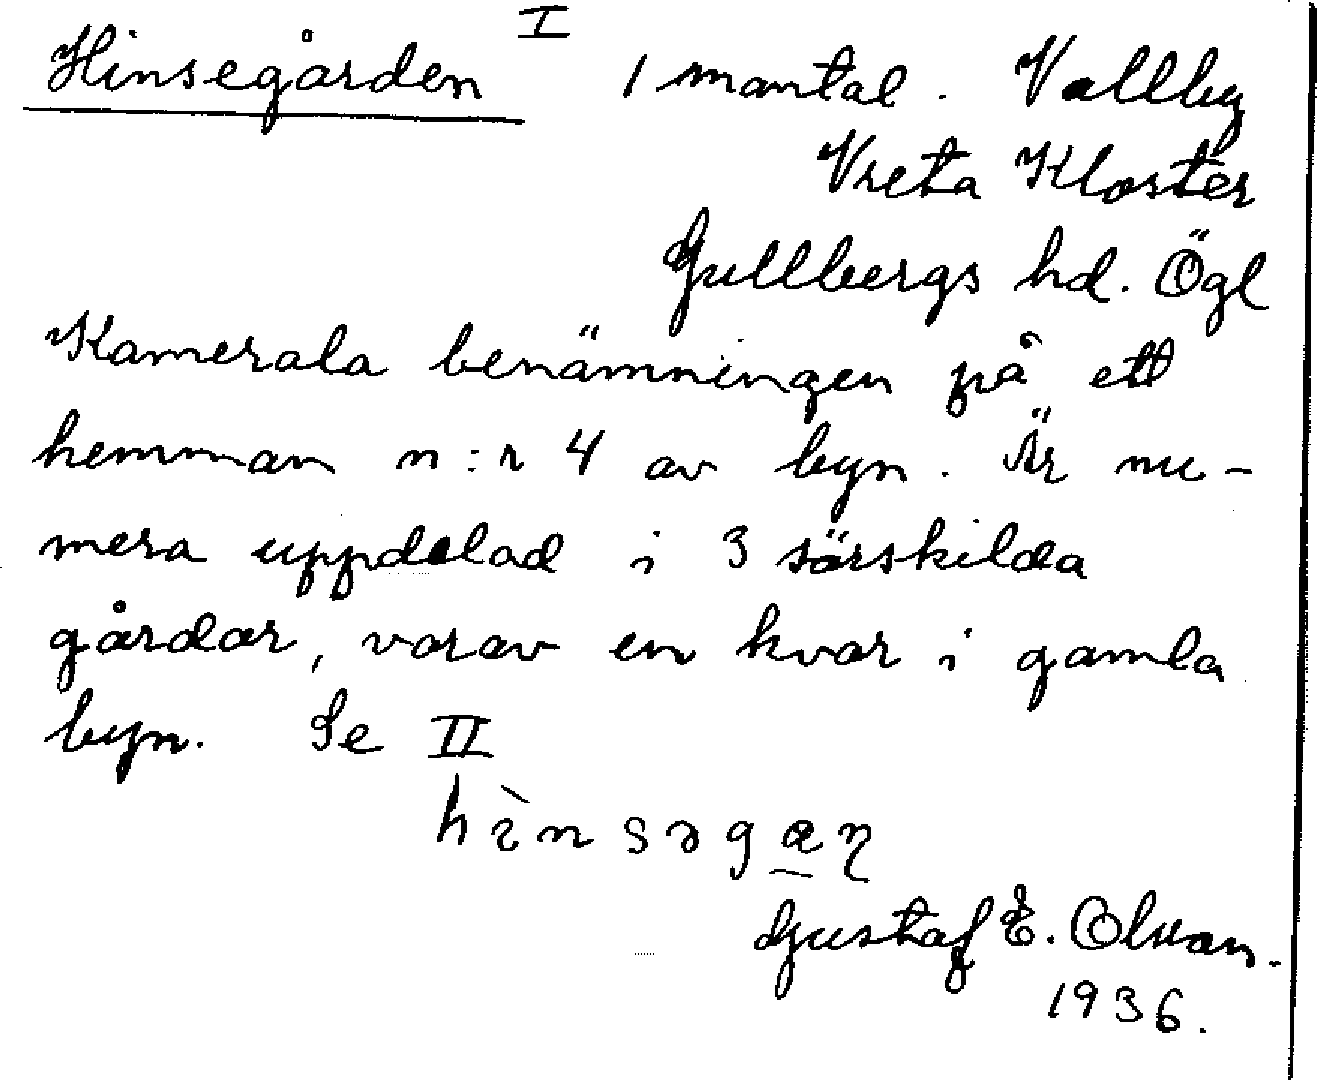 Hinsegården I 1 mantal. Vallby
Vreta Kloster
Gullbergs hd. Ögl
Kamerala benämningen på ett
hemman n:r 4 av byn. Är nu-
mera uppdelad i 3 särskilda
gårdar, varav en kvar i gamla
byn. Se II
Gustaf E.
1936.